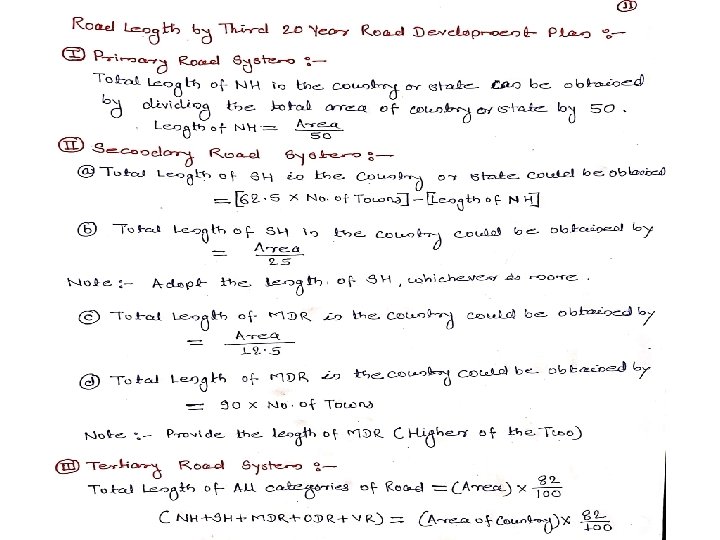 11
Road Length by Third 20 Year Road Development Plan :-
I Primary Road System :-
Total Length of NH in the country or state can be obtained
by dividing the total area of country or state by 50.
Length of NH = Area / 50
II Secondary Road System :-
a Total Length of SH in the country or state could be obtained
= [62.5 × No. of Towns] - [Length of NH]
b Total Length of SH in the country could be obtained by
= Area / 25
Note :- Adopt the length of SH, whichever is more.
c Total Length of MDR in the country could be obtained by
= Area / 12.5
d Total Length of MDR in the country could be obtained by
= 90 × No. of Towns
Note :- Provide the length of MDR (Higher of the Two)
III Tertiary Road System :-
Total Length of All categories of Road = (Area) × 82 / 100
(NH+SH+MDR+ODR+VR) = (Area of Country) × 82 / 100